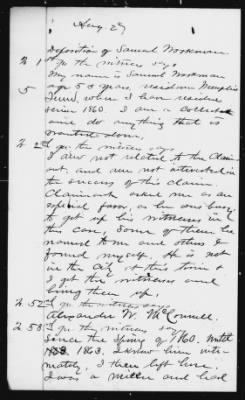 Aug 29
Deposition of Samuel Workman
2 1 To ... the witness says
My name is Samuel Workman
5 age 53 years, residence Memphis
Tenn, where I have resided
since 1860 I am a collector
and do anything that is
wanted done.
2 2d To qu the witness says
I am not related to the Claim-
ant, and am not interested in
the success of this Claim.
Claimant asked me as an
especial favor, as he was busy
to get up his witnesses in
this case, Some of them he
named to me and others I
found myself, He is not
in the City at this time &
I get the witnesses and
bring them up.
2 52 To qu the witness says
Alexander W. McConnell.
2 53 To qu the witness says
Since the Spring of 1860. Until
1863. I knew him inti-
mately, I then left here.
I was a miller and had